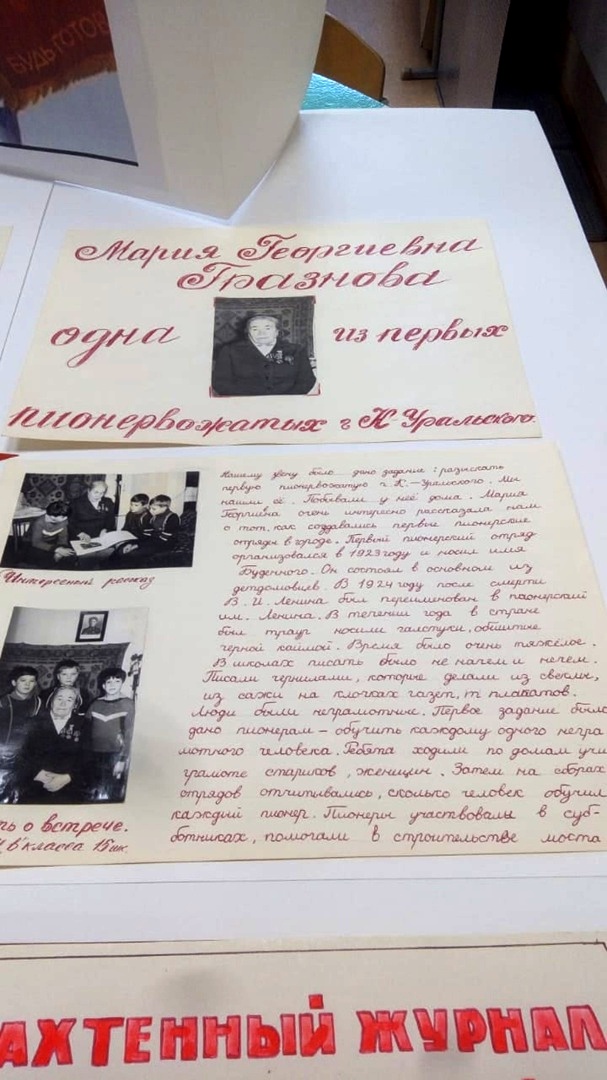 БУДЬ ГОТОВ
Мария Георгиевна
Гразнова
одна из первых
пионервожатых г К-Уральского.
Нашему звену было дано задание: разыскать
первую пионервожатую г. К.-Уральского. Мы
нашли её. Побывали у неё дома. Мария
Георгиевна очень интересно рассказала нам
о том, как создавались первые пионерские
отряды в городе. Первый пионерский отряд
организовался в 1923 году и носил имя
Буденного. Он состоял в основном из
детдомовцев. В 1924 году после смерти
В. И. Ленина был переименован в пионерский
им. Ленина. В течении года в стране
был траур носили галстуки, обшитые
черной каймой. Время было очень тяжёлое.
В школах писать было не начем и нечем.
Писали чернилами, которые делали из свеклы,
из сажи на клочках газет, плакатов.
Люди были неграмотные. Первое задание было
дано пионерам – обучить каждому одного негра
мотного человека. Ребята ходили по домам учи
грамоте стариков, женщин. Затем на сборах
отрядов отчитывались, сколько человек обучил
каждый пионер. Пионеры участвовали в суб-
ботниках, помогали в строительстве моста
Интересный рассказ
ть о встрече.
6 класса 15 шк.
АХТЕННЫЙ ЖУРНАЛ